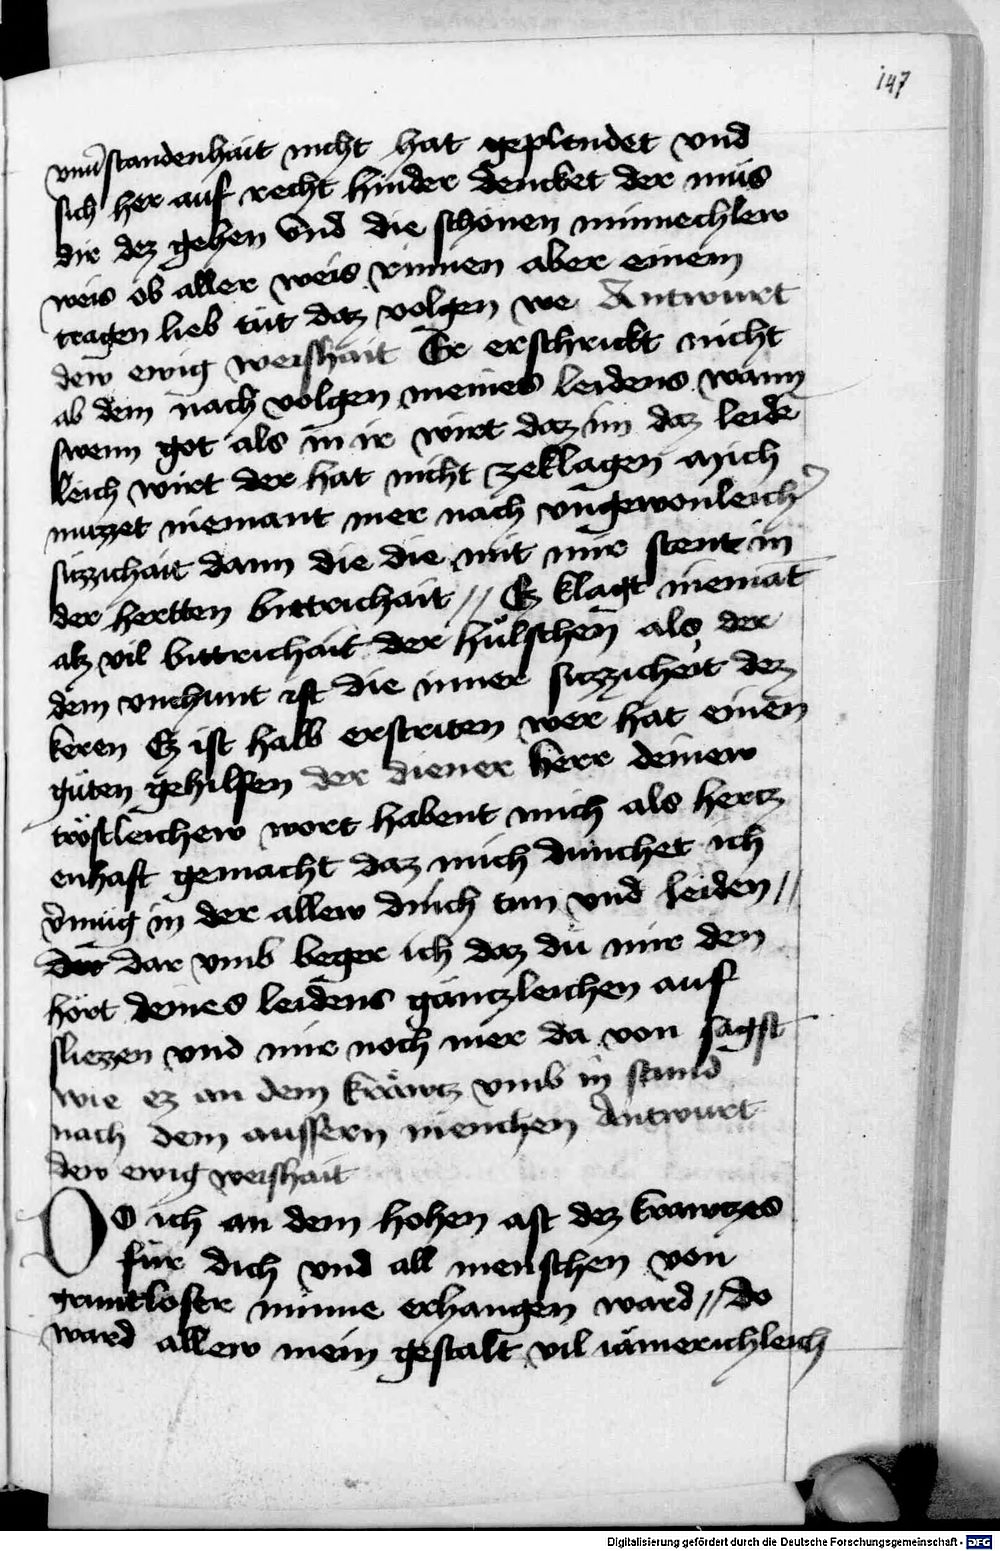 147
vnu̾standenhait nicht hat geplendet vnd
sich her auf recht hinder dencket der mus
dir dez gehen vnd die schonen minnechlew
weis ob aller weis rinnen aber einem
tragen lieb tůt daz volgen we Antwurt
dew ewig weishait Er erschrickt nicht
ab dem nach volgen meines leidens wann
swem got als in ir wirt daz im daz leide
leich wirt der hat nicht zeklagen Mich
nuzzet niemant mer nach vngewonleich̾
suzzichait dann die die mit mir stent in
der hertten bittrichait // Ez klagt niemāt
alz vil bittrichait der hůlschen als der
dem vnchunt ist die inner suzzicheit dez
keren Ez ist halb erstriten wer hat einen
guten gehilffen der diener Herr deinew
tröstleichew wort habent mich als hertz
enhaft gemacht daz mich dunchet ich
v̾müg in der allew dinch tun vnd leiden //
dar vmb beger ich daz du mir den
hört deines leidens gantzleichen auf
sliezzen vnd mir noch mer da von sagst
wie ez an dem kräwtz vmb in stund
nach dem aussern menchen Antwurt
dew ewig weishait
Do ich an dem hohen ast dez krawtzes
für dich vnd all menschen von
gruntloser minne erhangen ward // do
ward allew mein gestalt vil iämerichleich
Digitalisierung gefördert durch die Deutsche Forschungsgemeinschaft - DFG